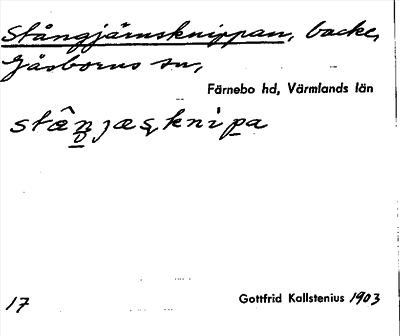 Stångjärnsknippan, backe,
Gåsborns sn,
Färnebo hd, Värmlands län
stâŋjæʂknipa
17
Gottfrid Kallstenius 1903